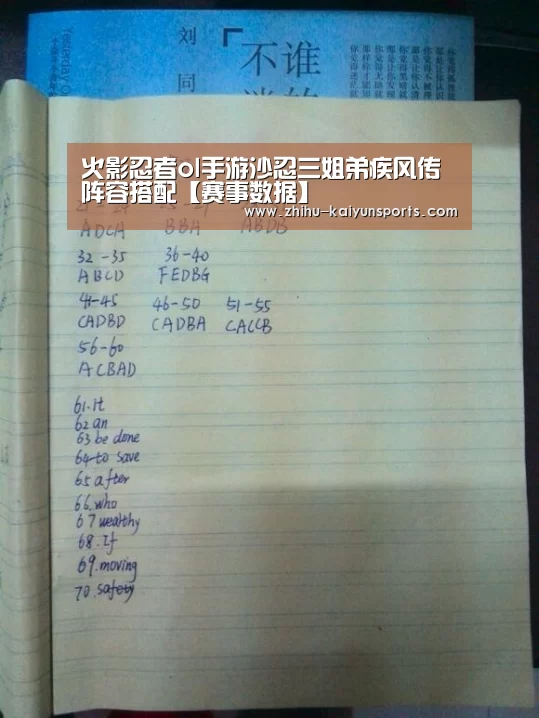 刘同
「谁的
不迷
火影忍者ol手游沙忍三姐弟疾风传
阵容搭配【赛事数据】
www.zhihu-kaiyunsports.com
ADCA BBA ABDB
32-35 36-40
ABCD FEDBG
41-45 46-50 51-55
CADBD CADBA CACCB
56-60
ACBAD
61.it
62 an
63 be done
64 to save
65 after
66.who
67 wealthy
68.If
69.moving
70.safety